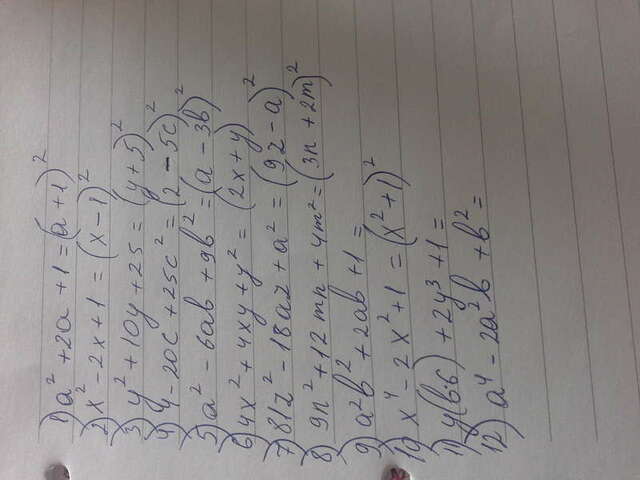 1) a² + 2a + 1 = (a + 1)²
2) x² - 2x + 1 = (x - 1)²
3) y² + 10y + 25 = (y + 5)²
4) 4 - 20c + 25c² = (2 - 5c)²
5) a² - 6ab + 9b² = (a - 3b)²
6) 4x² + 4xy + y² = (2x + y)²
7) 81z² - 18az + a² = (9z - a)
8) 9n² + 12mn + 4m² = (3n + 2m)²
9) a²b² + 2ab + 1 =
10) x⁴ - 2x² + 1 = (x² + 1)²
11) y(b.6) + 2y³ + 1 =
12) a⁴ - 2a²b + b² =